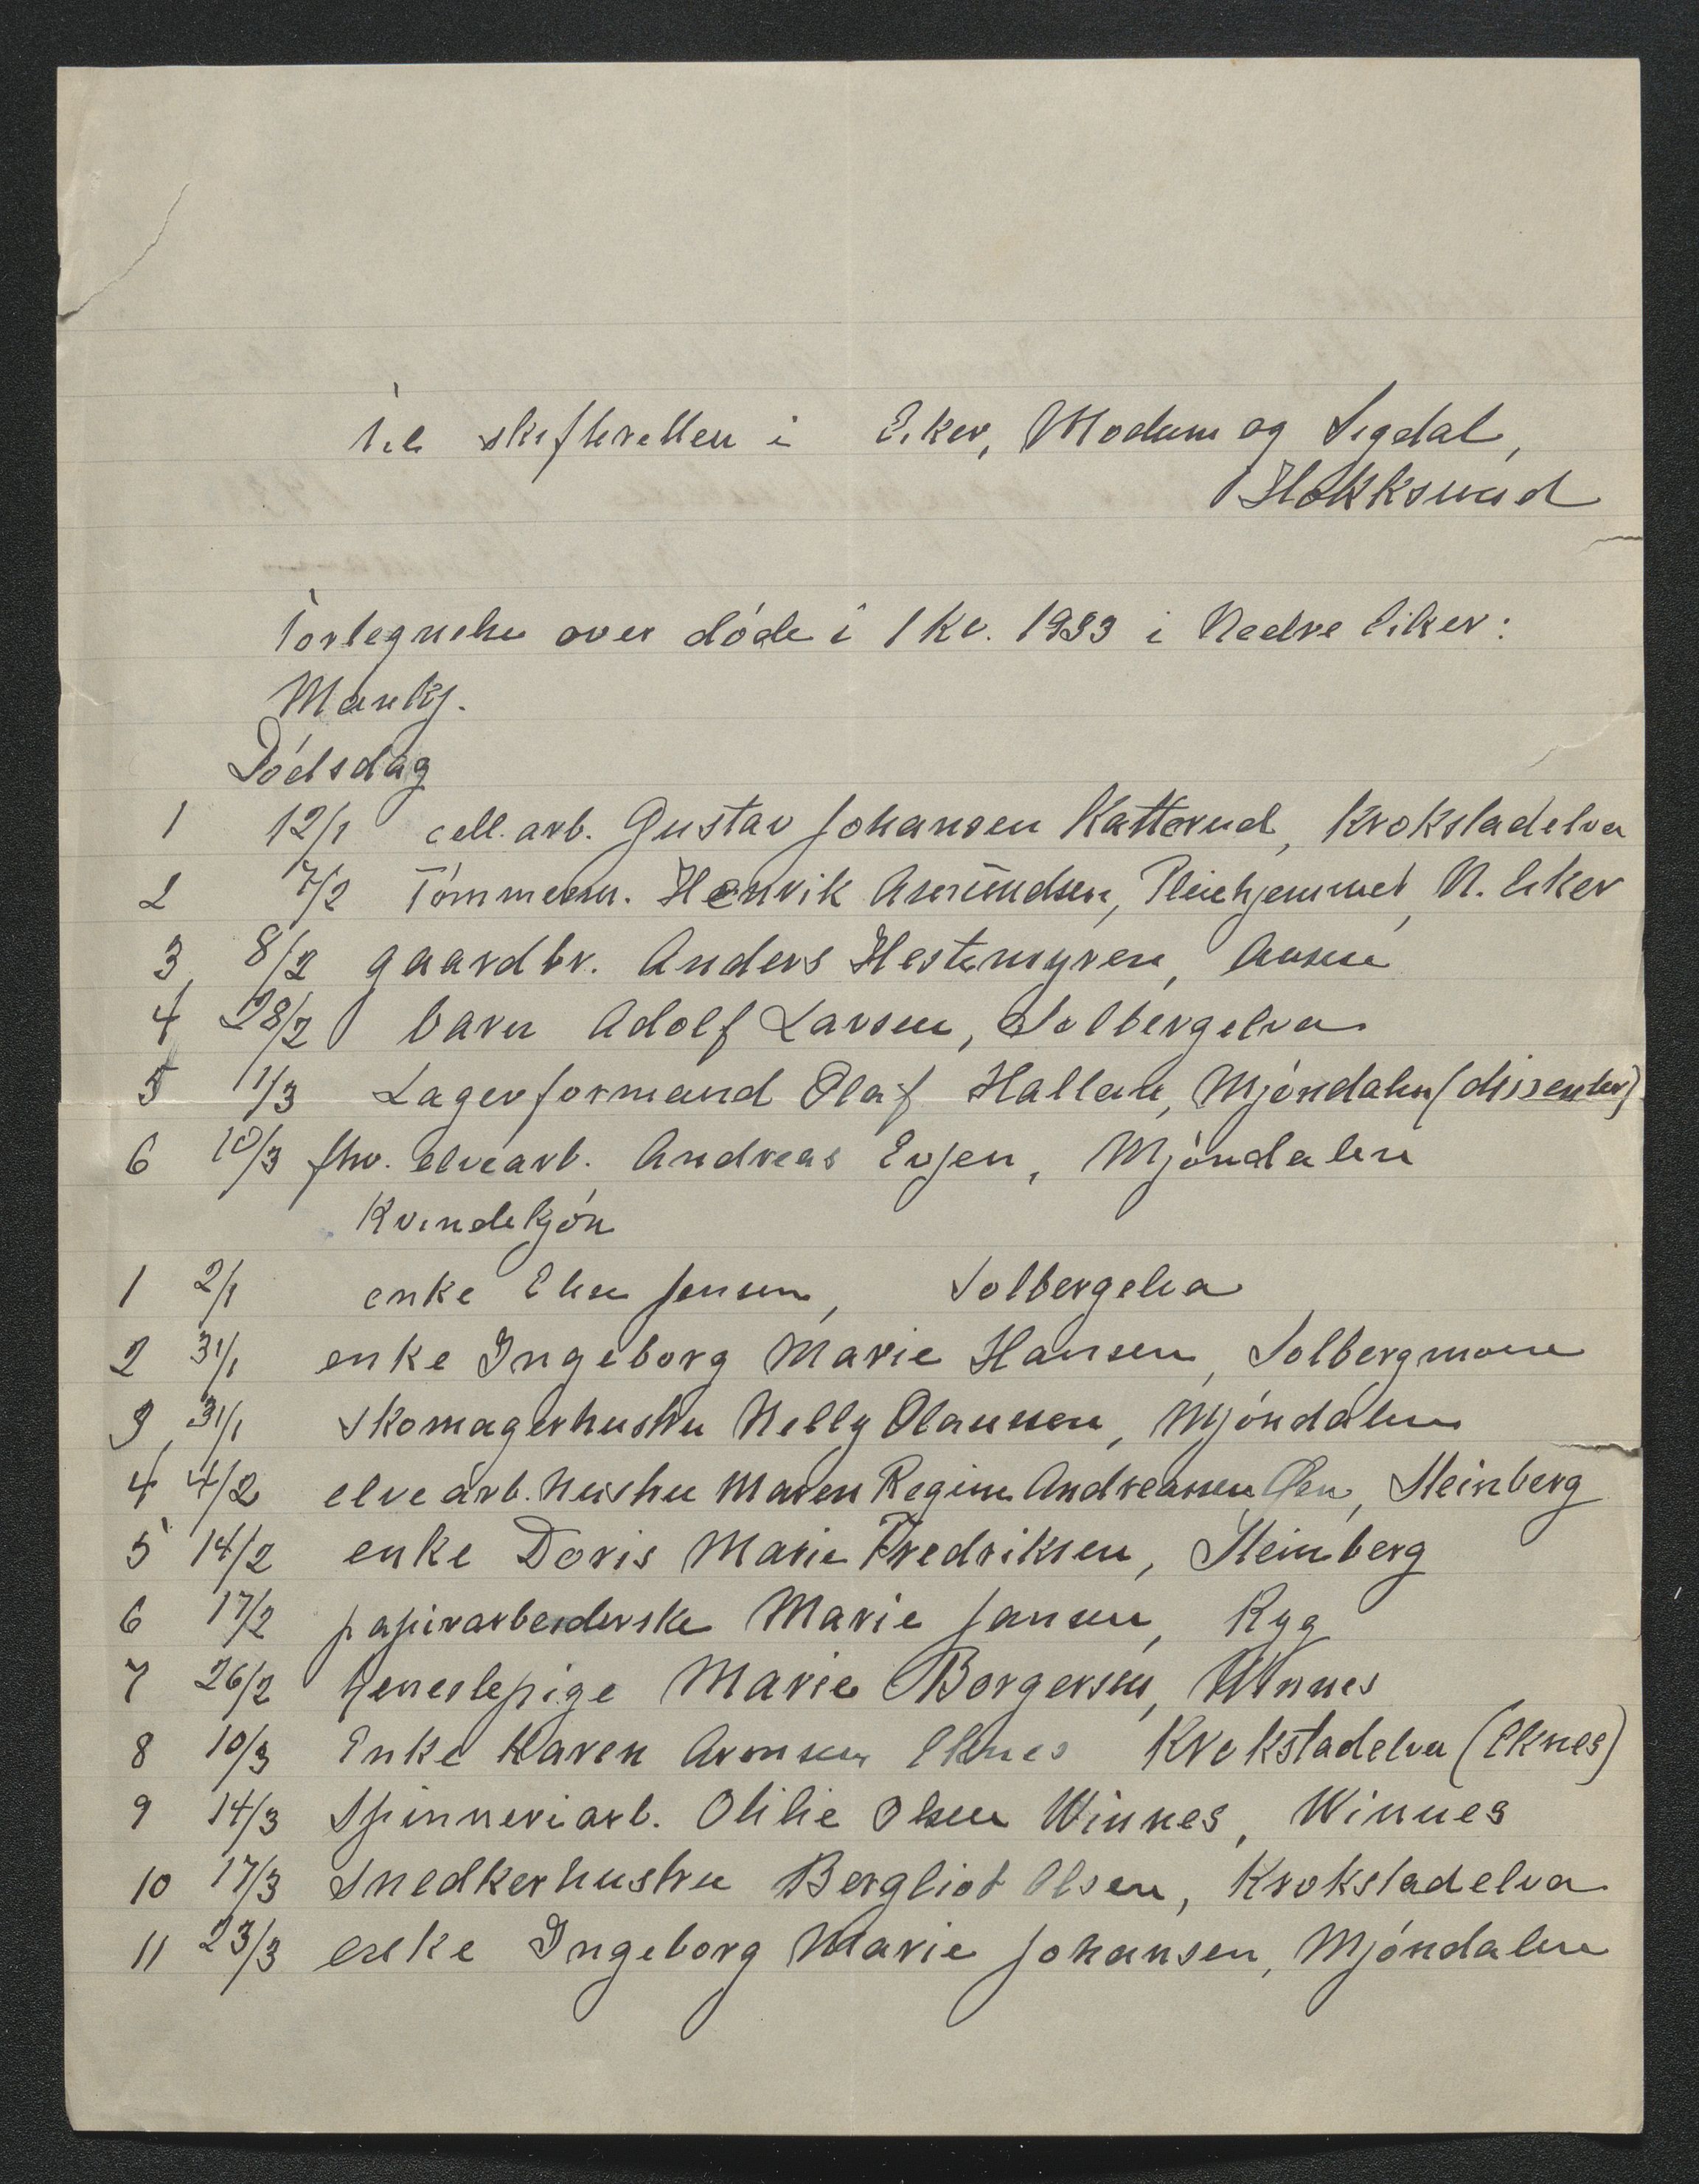 Til skifteretten i Eiker, Modum og Sigdal,
Hokksund
Fortegnelse over døde i 1 kv. 1933 i Nedre Eiker:
Mankj.
Dødsdag
1 12/1 cell. arb. Gustav Johansen Katterud, Krokstadelva
2 7/2 Tømmerm. Henrik Amundsen, Pleiehjemmet, N. Eiker
3 8/2 gaardbr. Anders Hestemyren, Aasen
4 28/2 barn Adolf Larsen, Solbergelva
5 11/3 Lagerformand Olaf Hallan, Mjøndalen (dissenter)
6 10/3 fhv. elvearb. Andreas Evjen, Mjøndalen
Kvindekjøn
1 2/1 enke Elise Jensen, Solbergelva
2 31/1 enke Ingeborg Marie Hansen, Solbergmoen
3 31/1 Skomagerhustru Nelly Olaussen, Mjøndalen
4 4/2 elvearb. hustru Maren Regine Andreassen, Steinberg
5 14/2 enke Doris Marie Fredriksen, Steinberg
6 17/2 papirarbeiderske Marie Jansen, Ryg
7 26/2 tjenestepige Marie Borgersen, Winnes
8 10/3 Enke Karen Aronsen Eknes Krokstadelva (Eknes)
9 14/3 Spinneriarb. Otilie Olsen Winnes, Winnes
10 17/3 Snedkerhustru Bergliot Olsen, Krokstadelva
11 23/3 enke Ingeborg Marie Johansen, Mjøndalen